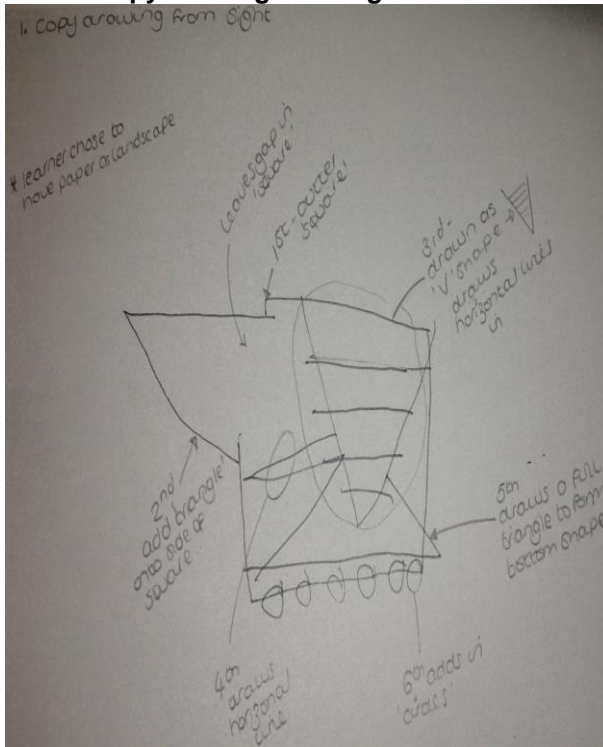 1. Copy drawing from sight
* learner chose to
have paper as landscape
leaves gap in
'square'
1st - outer
square'
3rd -
drawn as
'V' shape
draws
horizontal lines
in
2nd
add 'triangle'
onto side of
square
5th
draws a full
triangle to form
bottom shape
4th
draws
horizontal
line
6th adds in
'circles'